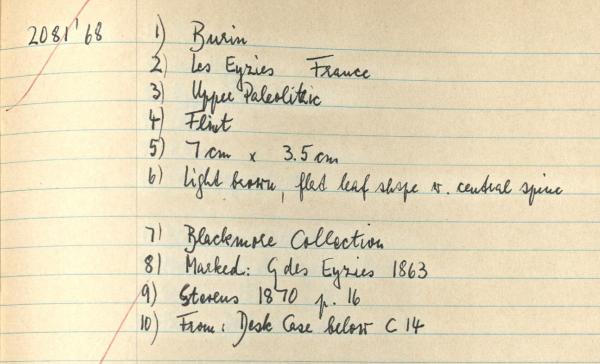 2081'68 1) Burin
2) Les Eyzies France
3) Upper Paleolithic
4) Flint
5) 7 cm x 3.5 cm
6) light brown, flat leaf shape w. central spine
7) Blackmore Collection
8) Marked: G des Eyzies 1863
9) Stevens 1870 p. 16
10) From: Desk Case below C 14